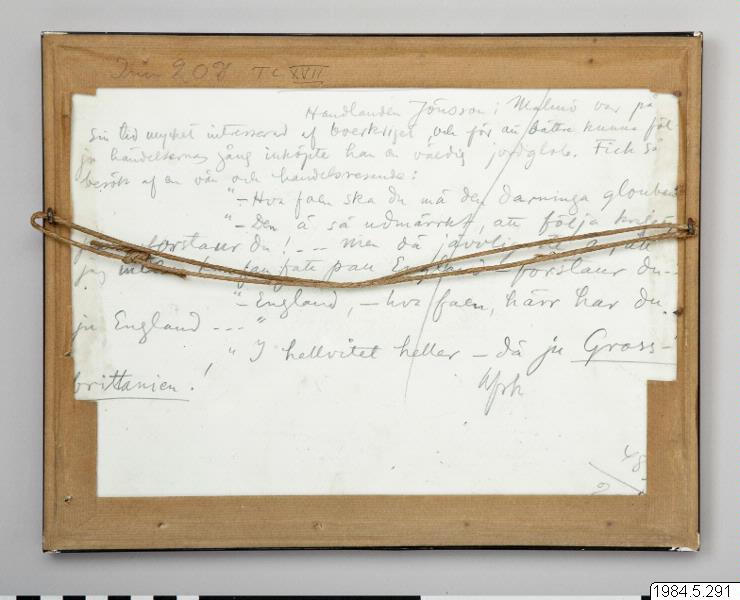 208 TC XVII
Handlanden Jönsson i Malmö var på
sin tid mycket intresserad af boerkriget, och för att bättre kunna föl
ja händelsernas gång inköpte han en väldig jordglob. Fick så
besök af en vän och handelsresande:
"– Hva faen ska du må den darninga glouben
"– Den å så udmärrkt, att följa kriget
förstaur du! – – Men då
jag inte fau fatt pau England förstaur du –
"– England, – hva faen, härr har du
ju England – – – "
" I hellvitet heller – då ju Gross-
brittanien!
48
2
1984.5.291